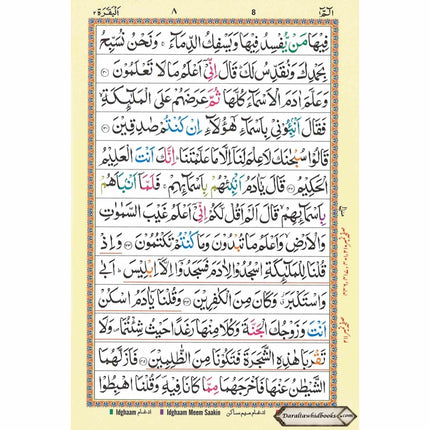 الٓمّٓ ١ 8 ٨ اَلْبَقَرَة ٢
فِيْهَا مَنْ يُّفْسِدُ فِيْهَا وَيَسْفِكُ الدِّمَآءَ ۚ وَنَحْنُ نُسَبِّحُ
بِحَمْدِكَ وَنُقَدِّسُ لَكَ ؕ قَالَ اِنِّيْٓ اَعْلَمُ مَا لَا تَعْلَمُوْنَ ﴿٣٠﴾
وَعَلَّمَ اٰدَمَ الْاَسْمَآءَ كُلَّهَا ثُمَّ عَرَضَهُمْ عَلَى الْمَلٰٓئِكَةِ ۙ
فَقَالَ اَنْۢبِـُٔوْنِيْ بِاَسْمَآءِ هٰٓؤُلَآءِ اِنْ كُنْتُمْ صٰدِقِيْنَ ﴿٣١﴾
قَالُوْا سُبْحٰنَكَ لَا عِلْمَ لَنَآ اِلَّا مَا عَلَّمْتَنَا ؕ اِنَّكَ اَنْتَ الْعَلِيْمُ
الْحَكِيْمُ ﴿٣٢﴾ قَالَ يٰٓاٰدَمُ اَنْۢبِئْهُمْ بِاَسْمَآئِهِمْ ۚ فَلَمَّآ اَنْۢبَاَهُمْ
بِاَسْمَآئِهِمْ ۙ قَالَ اَلَمْ اَقُلْ لَّكُمْ اِنِّيْٓ اَعْلَمُ غَيْبَ السَّمٰوٰتِ
وَالْاَرْضِ ۙ وَاَعْلَمُ مَا تُبْدُوْنَ وَمَا كُنْتُمْ تَكْتُمُوْنَ ﴿٣٣﴾ وَاِذْ
قُلْنَا لِلْمَلٰٓئِكَةِ اسْجُدُوْا لِاٰدَمَ فَسَجَدُوْٓا اِلَّآ اِبْلِيْسَ ؕ اَبٰى
وَاسْتَكْبَرَ ٭ۗ وَكَانَ مِنَ الْكٰفِرِيْنَ ﴿٣٤﴾ وَقُلْنَا يٰٓاٰدَمُ اسْكُنْ
اَنْتَ وَزَوْجُكَ الْجَنَّةَ وَكُلَا مِنْهَا رَغَدًا حَيْثُ شِئْتُمَا ۪ وَلَا
تَقْرَبَا هٰذِهِ الشَّجَرَةَ فَتَكُوْنَا مِنَ الظّٰلِمِيْنَ ﴿٣٥﴾ فَاَزَلَّهُمَا
الشَّيْطٰنُ عَنْهَا فَاَخْرَجَهُمَا مِمَّا كَانَا فِيْهِ ۪ وَقُلْنَا اهْبِطُوْا
Idghaam ادغام Idghaam Meem Saakin ادغام میم ساکن
Daraltawhidbooks.com